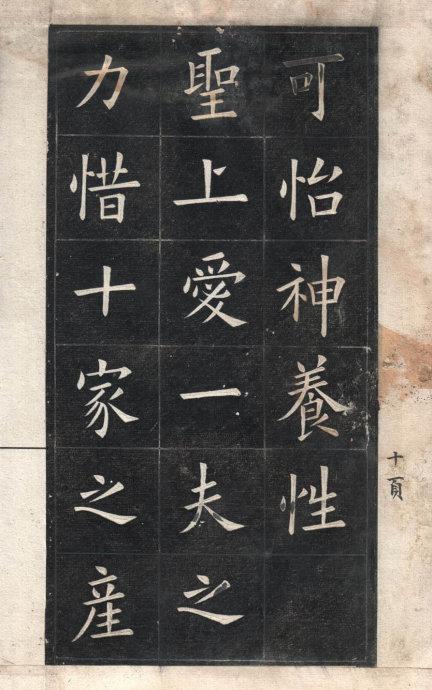 十頁
可怡神養性
聖上愛一夫之
力惜十家之産